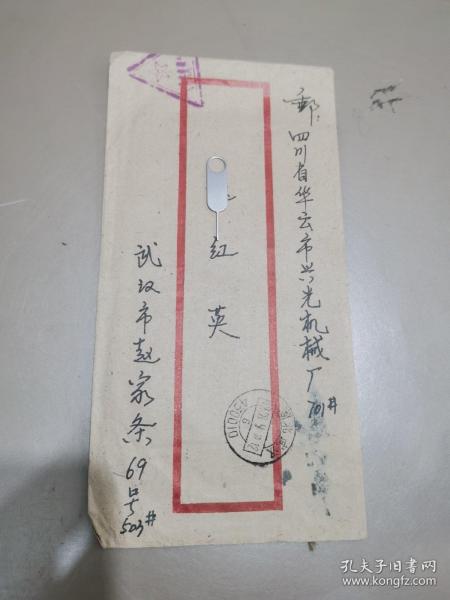 郵：四川省华云市兴光机械厂701#
红英
武汉市赵家条69号503#
430010
孔夫子旧书网
www.kongfz.com